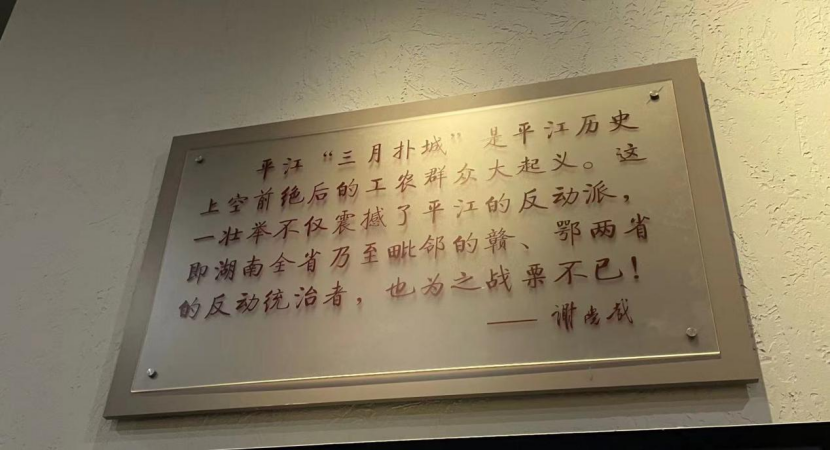 平江“三月扑城”是平江历史
上空前绝后的工农群众大起义。这
一壮举不仅震撼了平江的反动派，
即湖南全省乃至毗邻的赣、鄂两省
的反动统治者，也为之战栗不已！
——谢